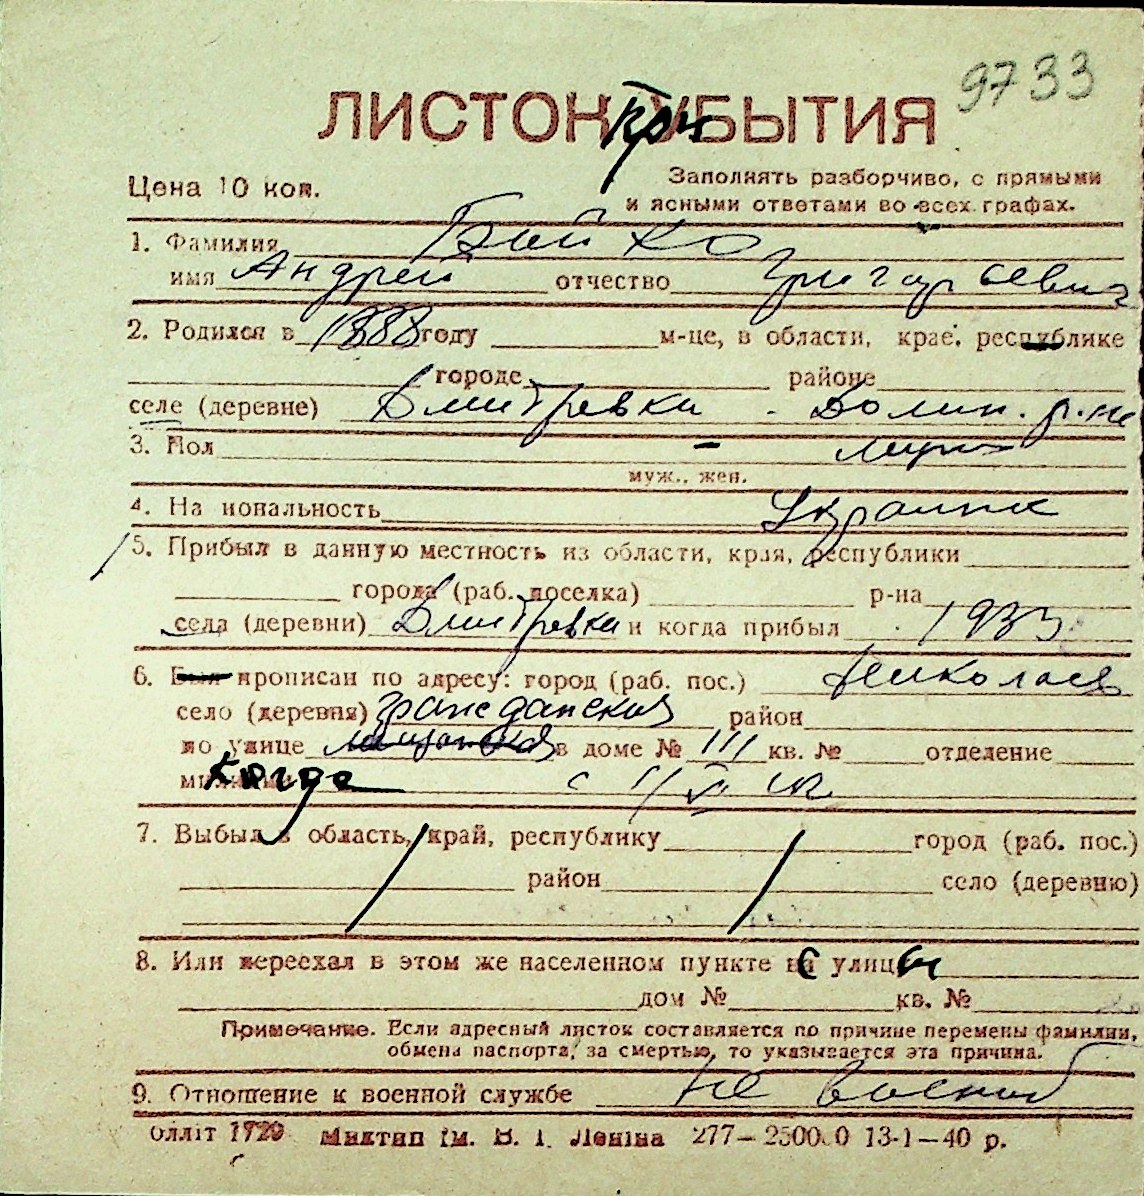 9733
ЛИСТОК УБЫТИЯ
При
Цена 10 коп.
Заполнять разборчиво, с прямыми
и ясными ответами во всех графах.
1. Фамилия Бойко
имя Андрей отчество Григорьевич
2. Родился в 1888 году м-це, в области, крае, республике
городе районе
селе (деревне) Дмитревки - Долин. р-не
3. Пол - муж
муж., жен.
4. Национальность Украинец
5. Прибыл в данную местность из области, края, республики
города (раб. поселка) р-на
села (деревни) Дмитревки и когда прибыл 1933
6. Был прописан по адресу: город (раб. пос.) Николаев
село (деревня) Гражданская район
по улице в доме № 111 кв. № отделение
милиции Когда с
7. Выбыл в область, край, республику город (раб. пос.)
район село (деревню)
8. Или переехал в этом же населенном пункте с улицы
дом № кв. №
Примечание. Если адресный листок составляется по причине перемены фамилии,
обмена паспорта, за смертью, то указывается эта причина.
9. Отношение к военной службе Не военноб
Олліт 1720 Миктип ім. В. І. Леніна 277—250000 13-1—40 р.